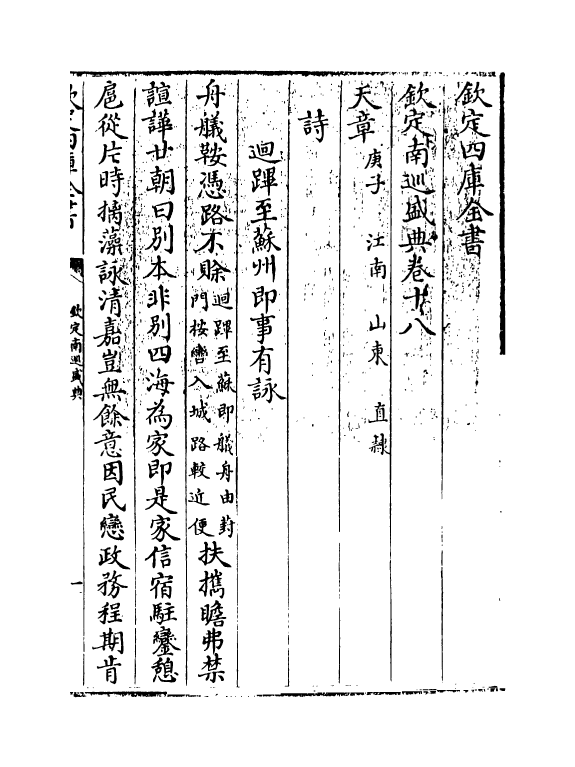 欽定四庫全書
欽定南巡盛典卷十八
天章 庚子 江南 山東 直隸
詩
迴蹕至蘇州即事有詠
舟艤鞍憑路不賖迴蹕至蘇即艤舟由葑門按轡入城路較近便扶攜瞻弗禁
諠譁廿朝曰別本非別四海為家即是家信宿駐鑾憩
扈從片時摛藻詠清嘉豈無餘意因民戀政務程期肯
欽定四庫全書
欽定南巡盛典
一